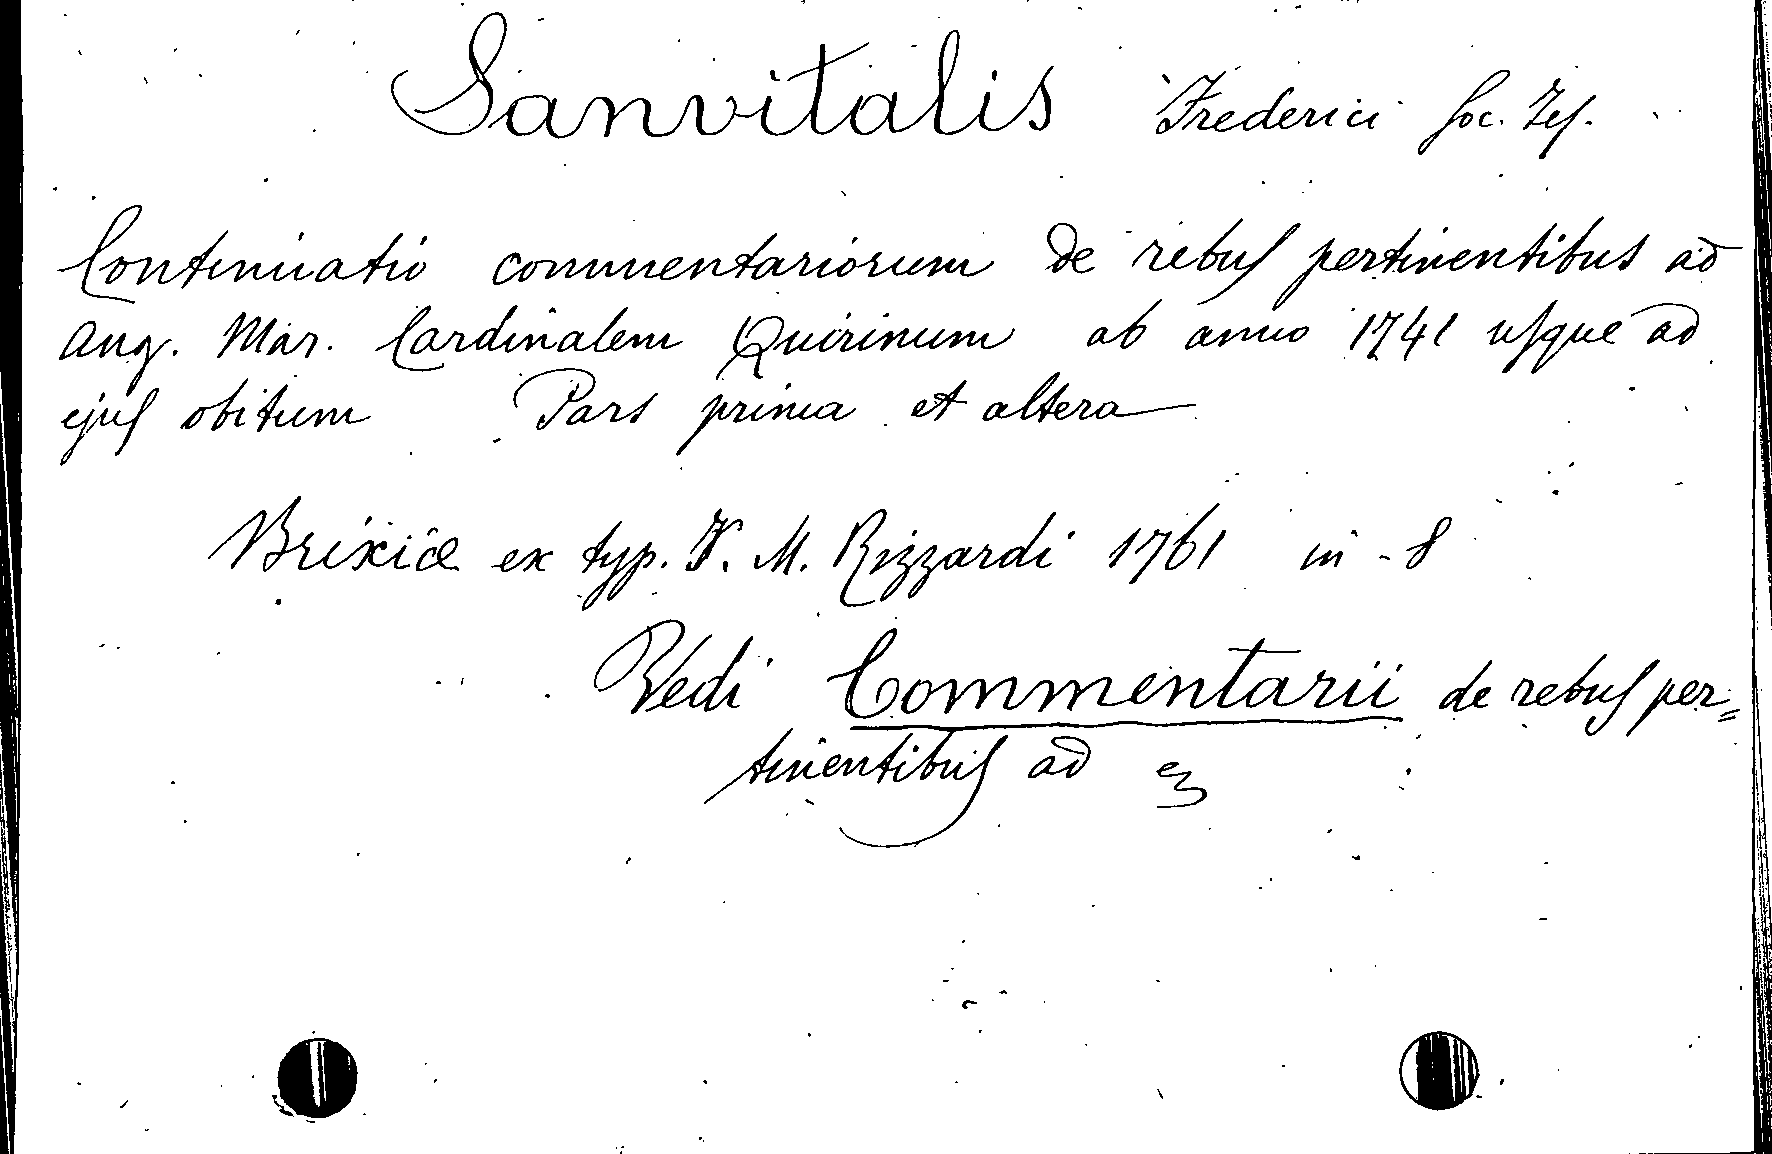 Sanvitalis Frederici Soc. Jes.
Continuatio commentariorum de rebus pertinentibus ad
Ang. Mar. Cardinalem Quirinum ab anno 1741 usque ad
ejus obitum Pars prima et altera
Brixiæ ex typ. J. M. Rizzardi 1761 in - 8
Vedi Commentarii de rebus per=
tinentibus ad